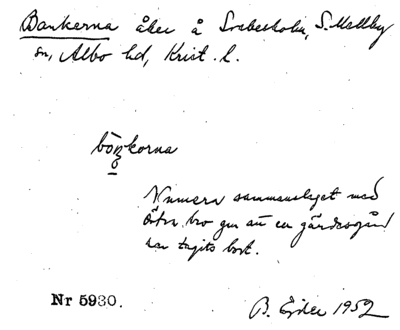 Bankerna åker å Svabesholm, S. Mellby
sn, Albo hd, Krist. l.
bo᷈ŋkorna
Numera sammanslaget med
bro gm att en gärdesgård
har tagits bort.
Nr 5930.
B. Ejder 1952